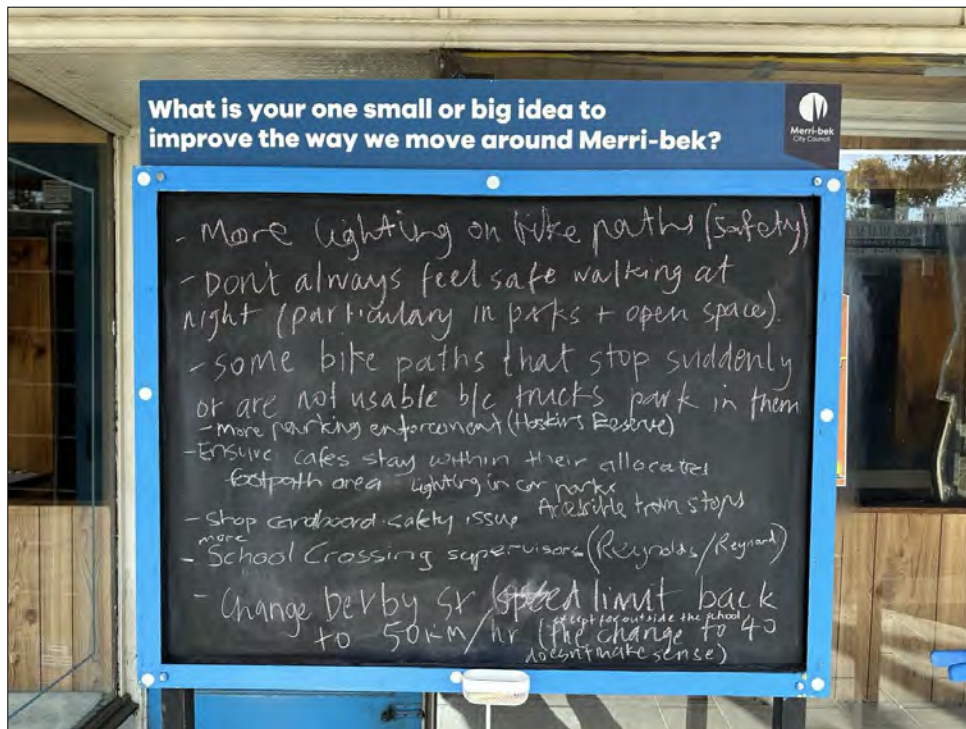 What is your one small or big idea to
improve the way we move around Merri-bek?
Merri-bek
City Council
- More lighting on bike paths (Safety)
- Don't always feel safe walking at
night (particulary in parks + open space).
- some bike paths that stop suddenly
or are not usable b/c trucks park in them
- More parking enforcement (Hoskins Reserve)
- Ensure cafes stay within their allocated
footpath area lighting in car parks
Accessible tram stops
- Stop cardboard safety issue
more
- School Crossing supervisors (Reynolds/Reynard)
- Change Derby st speed limit back
except for outside the school
to 50km/hr (the change to 40
doesn't make sense)